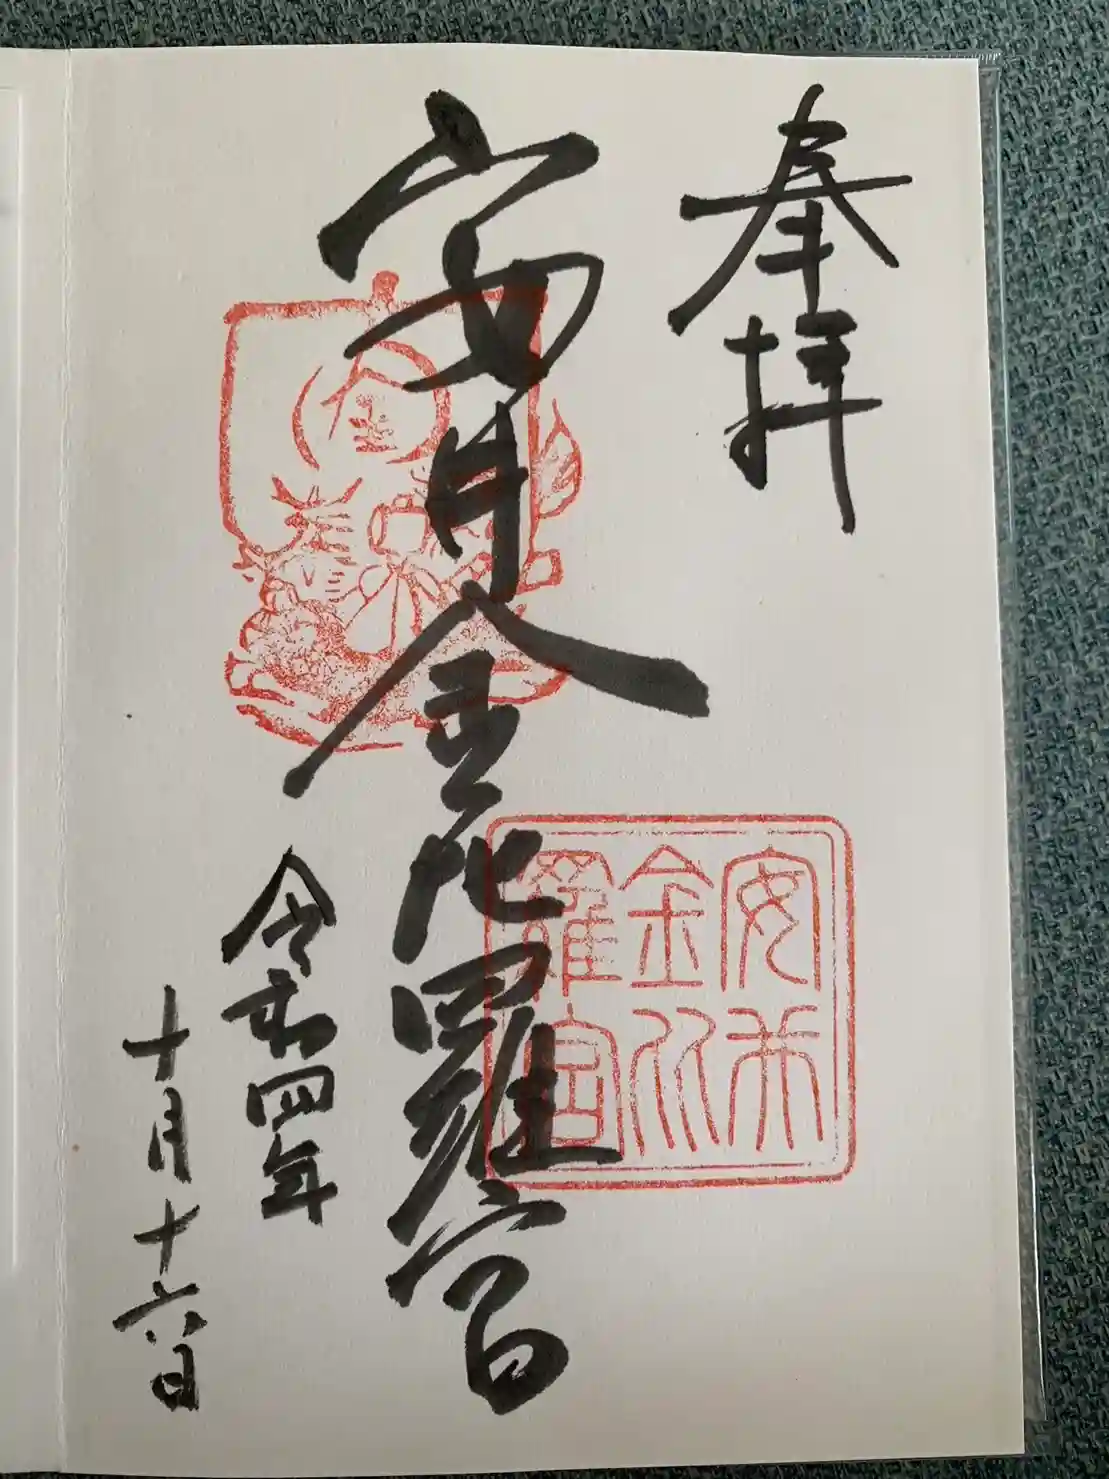 奉拝
安井金比羅宮
令和四年
十月十六日
金
安井
金比
羅宮